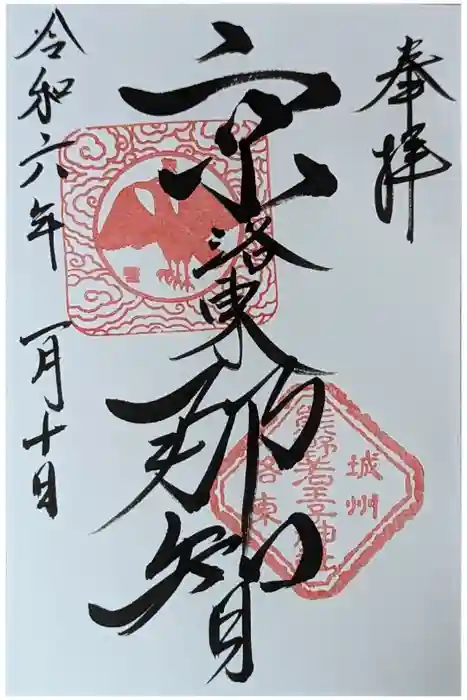 奉拝
京
洛東
那智
令和六年 一月十日
城州
熊野若王子神社
洛東